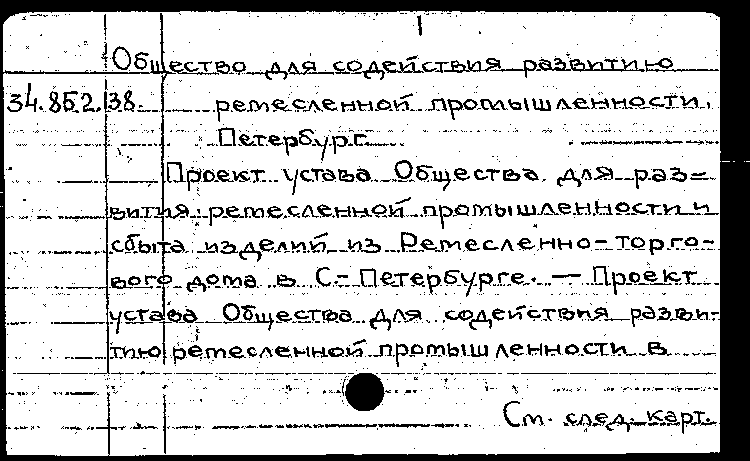 Общество для содействия развитию
34.85.2.138. ремесленной промышленности,
Петербург.
Проект устава Общества для раз=
вития ремесленной промышленности и
сбыта изделий из Ремесленно-торго-
вого дома в С.-Петербурге. — Проект
устава Общества для содействия разви-
тию ремесленной промышленности в
См. след. карт.